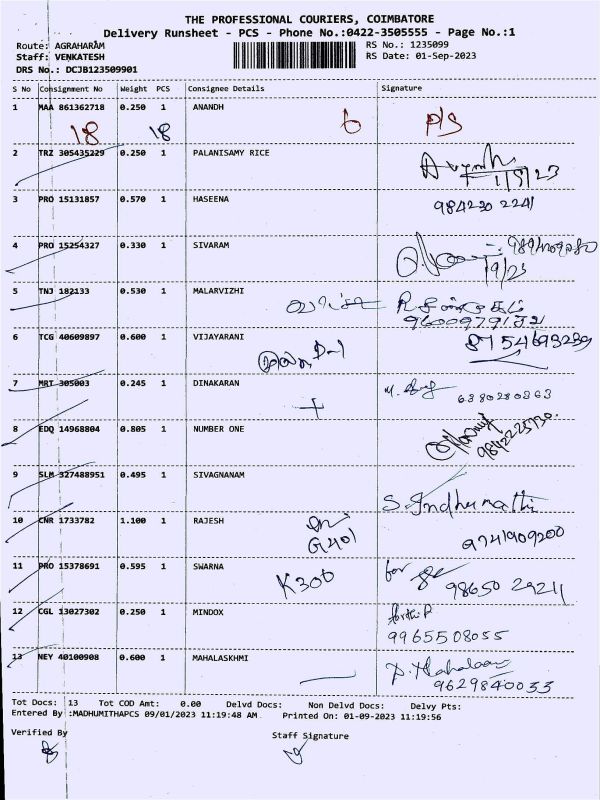 THE PROFESSIONAL COURIERS, COIMBATORE
Delivery Runsheet - PCS - Phone No.:0422-3505555 - Page No.:1
Route: AGRAHARAM RS No.: 1235099
Staff: VENKATESH RS Date: 01-Sep-2023
DRS No.: DCJB123509901
S No Consignment No Weight PCS Consignee Details Signature
1 MAA 861362718 0.250 1 ANANDH
18 18 6 P/S
2 TRZ 305435229 0.250 1 PALANISAMY RICE
1/9/23
3 PRO 15131857 0.570 1 HASEENA
984230 2241
4 PRO 15254327 0.330 1 SIVARAM
1/9/23
5 TNJ 182133 0.530 1 MALARVIZHI
6 TCG 40609897 0.600 1 VIJAYARANI
D-1
7 MRT 305003 0.245 1 DINAKARAN
6380280363
8 EDQ 14968804 0.805 1 NUMBER ONE
9842225730
9 SLM 327488951 0.495 1 SIVAGNANAM
S. Indhumathi
10 CNR 1733782 1.100 1 RAJESH
G401 9741909200
11 PRO 15378691 0.595 1 SWARNA
K300 for 98650 29211
12 CGL 13027302 0.250 1 MINDOX
9965508055
13 NEY 40100908 0.600 1 MAHALASKHMI
9629840033
Tot Docs: 13 Tot COD Amt: 0.00 Delvd Docs: Non Delvd Docs: Delvy Pts:
Entered By :MADHUMITHAPCS 09/01/2023 11:19:48 AM Printed On: 01-09-2023 11:19:56
Verified By Staff Signature